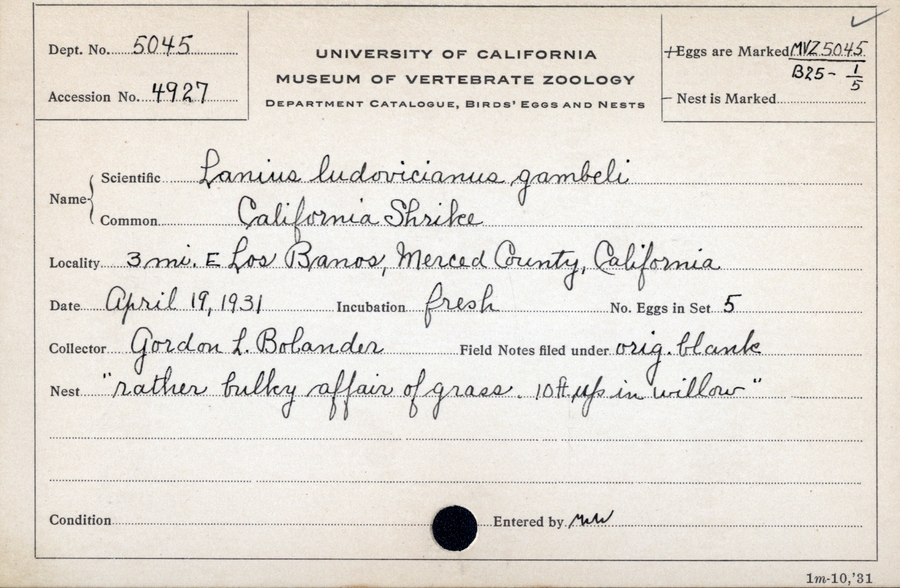 Dept. No. 5045
Accession No. 4927
UNIVERSITY OF CALIFORNIA
MUSEUM OF VERTEBRATE ZOOLOGY
DEPARTMENT CATALOGUE, BIRDS' EGGS AND NESTS
+Eggs are Marked MVZ 5045
B25- 1/5
- Nest is Marked
Name
Scientific Lanius ludovicianus gambeli
Common California Shrike
Locality 3 mi. E Los Banos, Merced County, California
Date April 19, 1931 Incubation fresh No. Eggs in Set 5
Collector Gordon L. Bolander Field Notes filed under orig. blank
Nest "rather bulky affair of grass. 10 ft. up in willow"
Condition Entered by
1m-10,'31